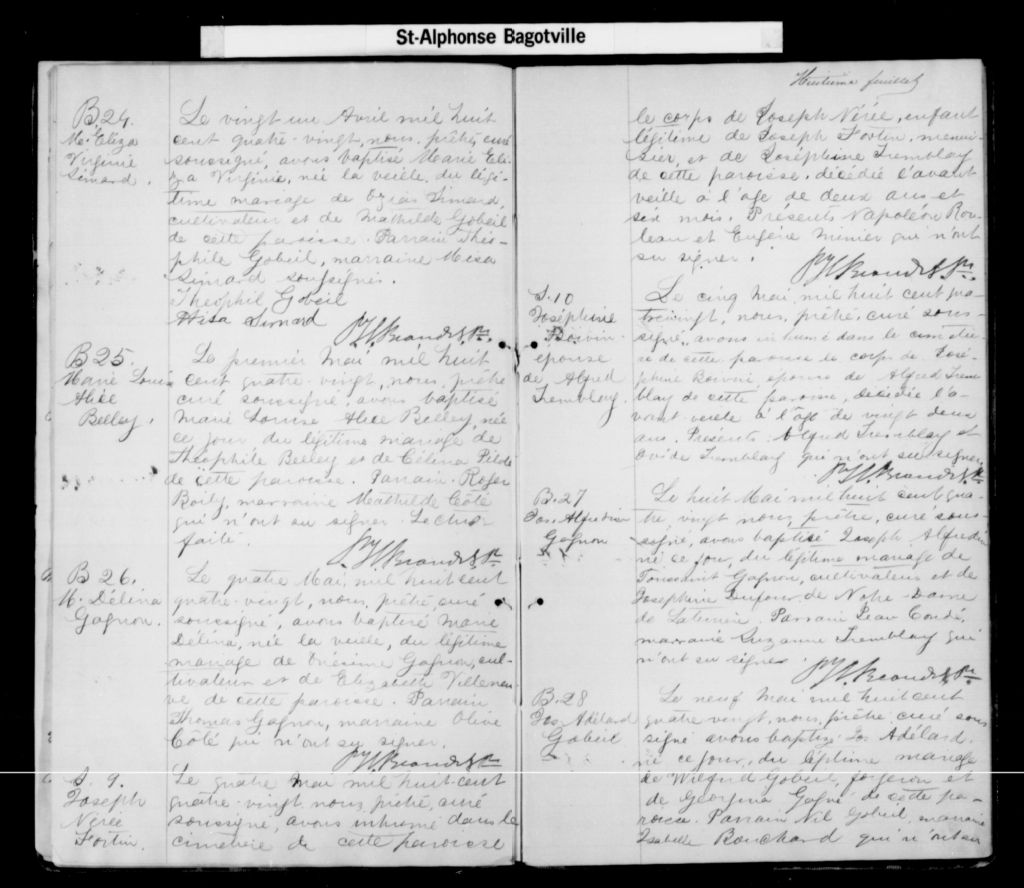 St-Alphonse Bagotville
B.24.
M. Eliza
Virginie
Simard.
Le vingt un Avril mil huit
cent quatre-vingt, nous, prêtre, curé
soussigné, avons baptisé Marie Eli-
za Virginie, née la veille, du légi-
time mariage de Ozias Simard,
cultivateur et de Mathilde Gobeil
de cette paroisse. Parrain Théo-
phile Gobeil, marraine
Simard soussignés.
Théophil Gobeil
Simard
B 25.
Marie Louise
Alice
Belley.
Le premier Mai mil huit
cent quatre-vingt, nous, prêtre
curé soussigné, avons baptisé
Marie Louise Alice Belley, née
ce jour du légitime mariage de
Théophile Belley et de Célina Pilote
de cette paroisse. Parrain Roger
Boily, marraine Mathilde Côté
qui n'ont su signer. Lecture
faite.
B 26.
M. Délina
Gagnon.
Le quatre Mai, mil huit cent
quatre-vingt, nous, prêtre curé
soussigné, avons baptisé Marie
Délina, née la veille, du légitime
mariage de Onésime Gagnon, cul-
tivateur et de Elizabeth Villeneu-
ve de cette paroisse. Parrain
Thomas Gagnon, marraine Olive
Côté qui n'ont su signer.
S. 9.
Joseph
Nérée
Fortin.
Le quatre Mai mil huit-cent
quatre-vingt nous, prêtre, curé
soussigné, avons inhumé dans le
cimetière de cette paroisse
Huitième feuillet
le corps de Joseph Nérée, enfant
légitime de Joseph Fortin, menui-
sier, et de Joséphine Tremblay
de cette paroisse, décédé l'avant
veille à l'âge de deux ans et
six mois. Présents Napoléon Rou-
leau et Eugène Minier qui n'ont
su signer.
S. 10
Joséphine
Boivin
épouse
de Alfred
Tremblay.
Le cinq Mai, mil huit cent qua-
trevingt, nous, prêtre curé sous-
signé, avons inhumé dans le cimetiè-
re de cette paroisse le corps de José-
phine Boivin, épouse de Alfred Trem-
blay de cette paroisse, décédée l'a-
vant veille à l'âge de vingt deux
ans. Présents: Alfred Tremblay et
Ovide Tremblay qui n'ont su signer
B.27
Jos. Alfred
Gagnon
Le huit Mai mil huit cent qua-
tre, vingt nous, prêtre, curé sous-
signé, avons baptisé Joseph
né ce jour, du légitime mariage de
Toussaint Gagnon, cultivateur et de
Joséphine Dufour de Notre-Dame
de Laterrière. Parrain Jean
marraine Suzanne Tremblay qui
n'ont su signer.
B.28
Jos. Adélard
Gobeil
Le neuf Mai mil huit cent
quatre vingt, nous, prêtre curé sous
signé avons baptisé Jos Adélard.
né ce jour, du légitime mariage
de Wilfrid Gobeil, forgeron et
de Georgina Gagné de cette pa-
roisse. Parrain Nil Gobeil, marraine
Isabelle Bouchard qui n'ont su